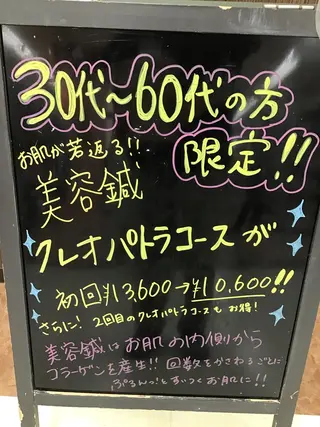 30代〜60代の方
限定!!
お肌が若返る!!
美容鍼
クレオパトラコースが
初回¥13,600→¥10,600!!
さらに! 2回目のクレオパトラコースもお得!
美容鍼はお肌の内側から
コラーゲンを産生!! 回数をかさねるごとに
ぷるんっとずっつくお肌に!!